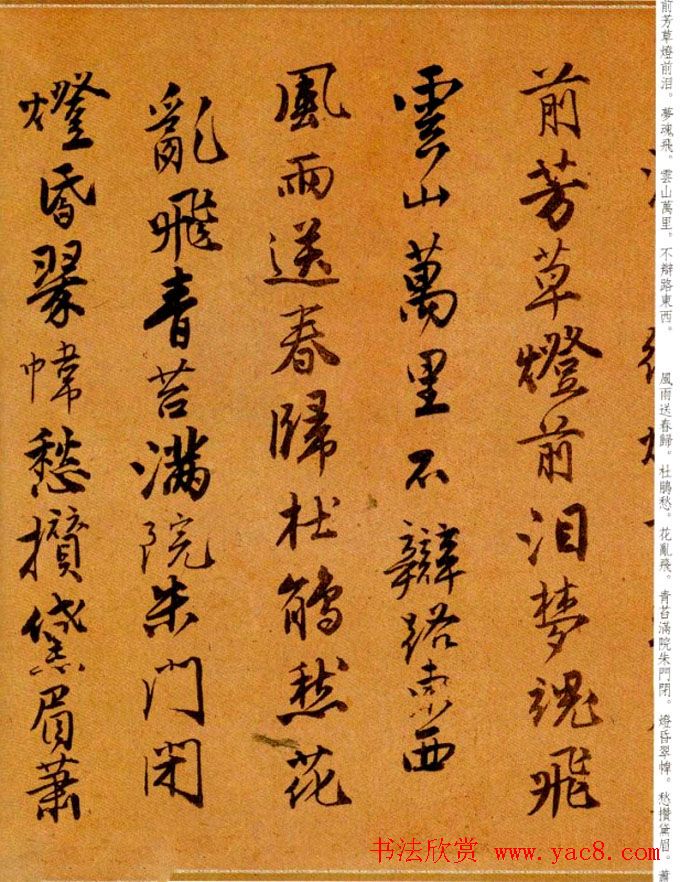 前芳草燈前泪夢魂飛
雲山萬里不辯路東西
風雨送春歸杜鵑愁花
亂飛青苔滿院朱門閉
燈昏翠幃愁攢黛眉蕭
前芳草燈前泪。夢魂飛。雲山萬里。不辯路東西。
風雨送春歸。杜鵑愁。花亂飛。青苔滿院朱門閉。燈昏翠幃。愁攢黛眉。蕭
书法欣赏 www.yac8.com